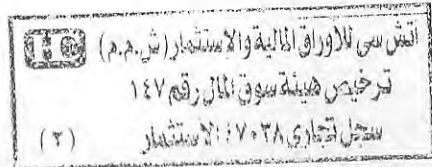 اتش سى للأوراق المالية والاستثمار (ش.م.م)
ترخيص هيئة سوق المال رقم ١٤٧
سجل تجارى ٤٧٠٣٨ الاستثمار (٣)